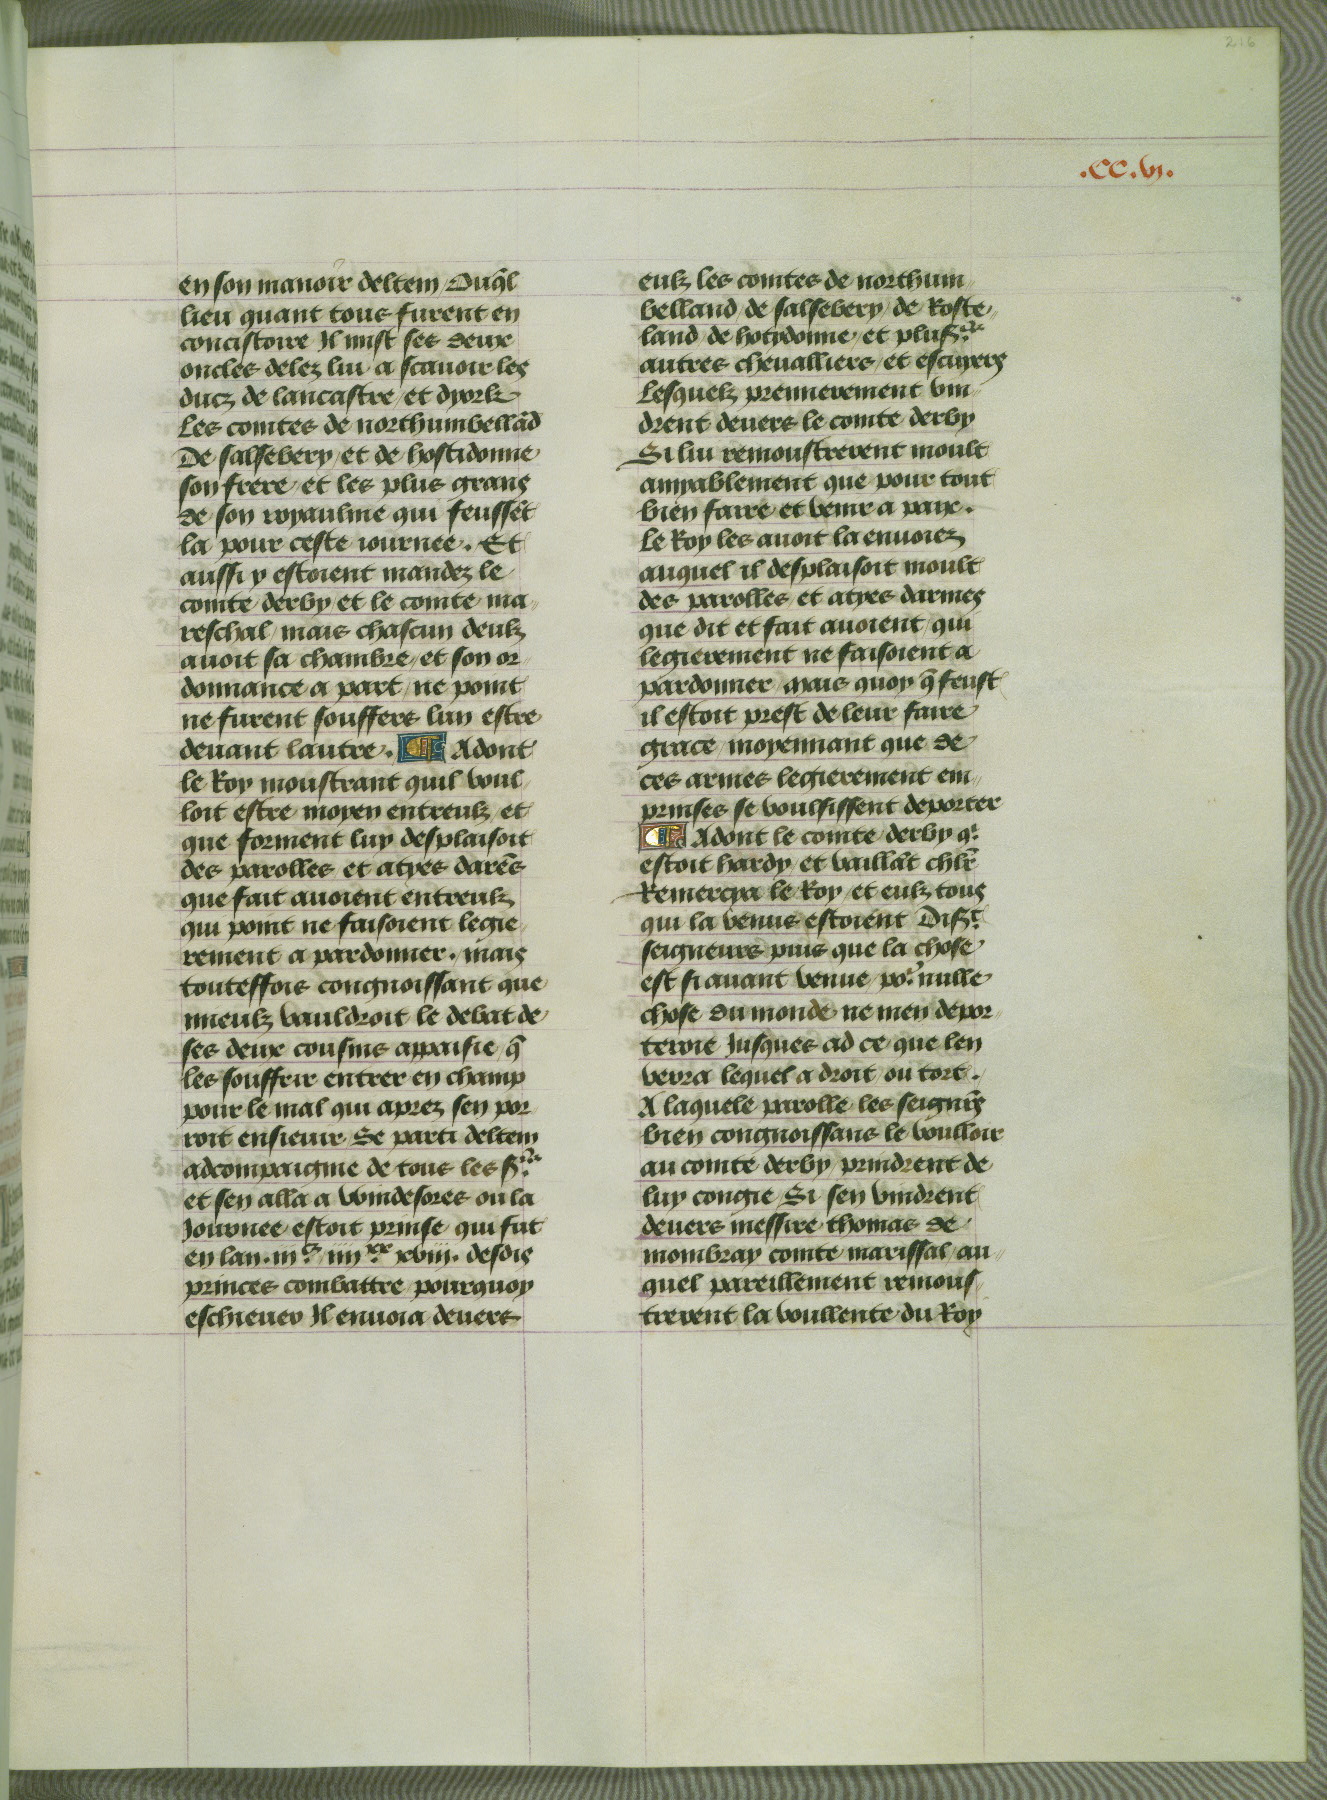 216
.CC.vi.
en son manoir deltem Ouq̄l
lieu quant tous furent en
concistoire Il mist ses deux
oncles delez lui a scauoir les
ducz de lancastre et dyork
Les comtes de northumbellād
De salsebery et de hostidonne
son frere et les plus grans
de son royaulme qui feussēt
la pour ceste iournee. Et
aussi y estoient mandez le
comte derby et le comte ma
reschal mais chascun deulz
auoit sa chambre et son or
donnance a part ne point
ne furent souffers lun estre
deuant lautre. Adont
le Roy moustrant quil voul
loit estre moyen entreulz et
que forment luy desplaisoit
des parolles et atyes darēs
que fait auoient entreulz
qui point ne faisoient legie
rement a pardonner. mais
touteffois congnoissant que
mieulz vauldroit le debat de
ses deux cousins appaisie q̄
les souffrir entrer en champ
pour le mal qui aprez sen por
roit ensieuir Se parti deltem
adcompaignie de tous les sʳˢ
et sen alla a windesores ou la
Journee estoit prinse qui fut
en lan. mccc iiiixx xviii. desdis
princes combattre pourquoy
eschieuer Il enuoia deuers
eulz les comtes de northum
belland de salsebery de Roste
land de hotydonne et plusʳˢ
autres cheualliers et escuyers
Lesquelz premierement vin
drent deuers le comte derby
Si lui remoustrerent moult
amyablement que pour tout
bien faire et venir a paix.
Le Roy les auoit la enuoiez
auquel il desplaisoit moult
des parolles et atyes darmes
que dit et fait auoient qui
legierement ne faisoient a
pardonner mais quoy q̄ feust
il estoit prest de leur faire
grace moyennant que de
ces armes legierement em
prinses se voulsissent deporter
Adont le comte derby qⁱ
estoit hardy et vaillāt chlr̄
Remercya le Roy et eulz tous
qui la venus estoient Disᵗ
seigneurs puis que la chose
est si auant venue poʳ nulle
chose du monde ne men depor
teroie Jusques ad ce que len
verra lequel a droit ou tort.
A laquele parolle les seignr̄s
bien congnoissans le voulloir
au comte derby prindrent de
luy congie Si sen vindrent
deuers messire thomas de
mombray comte marissal au
quel pareillement remous
trerent la voullente du Roy